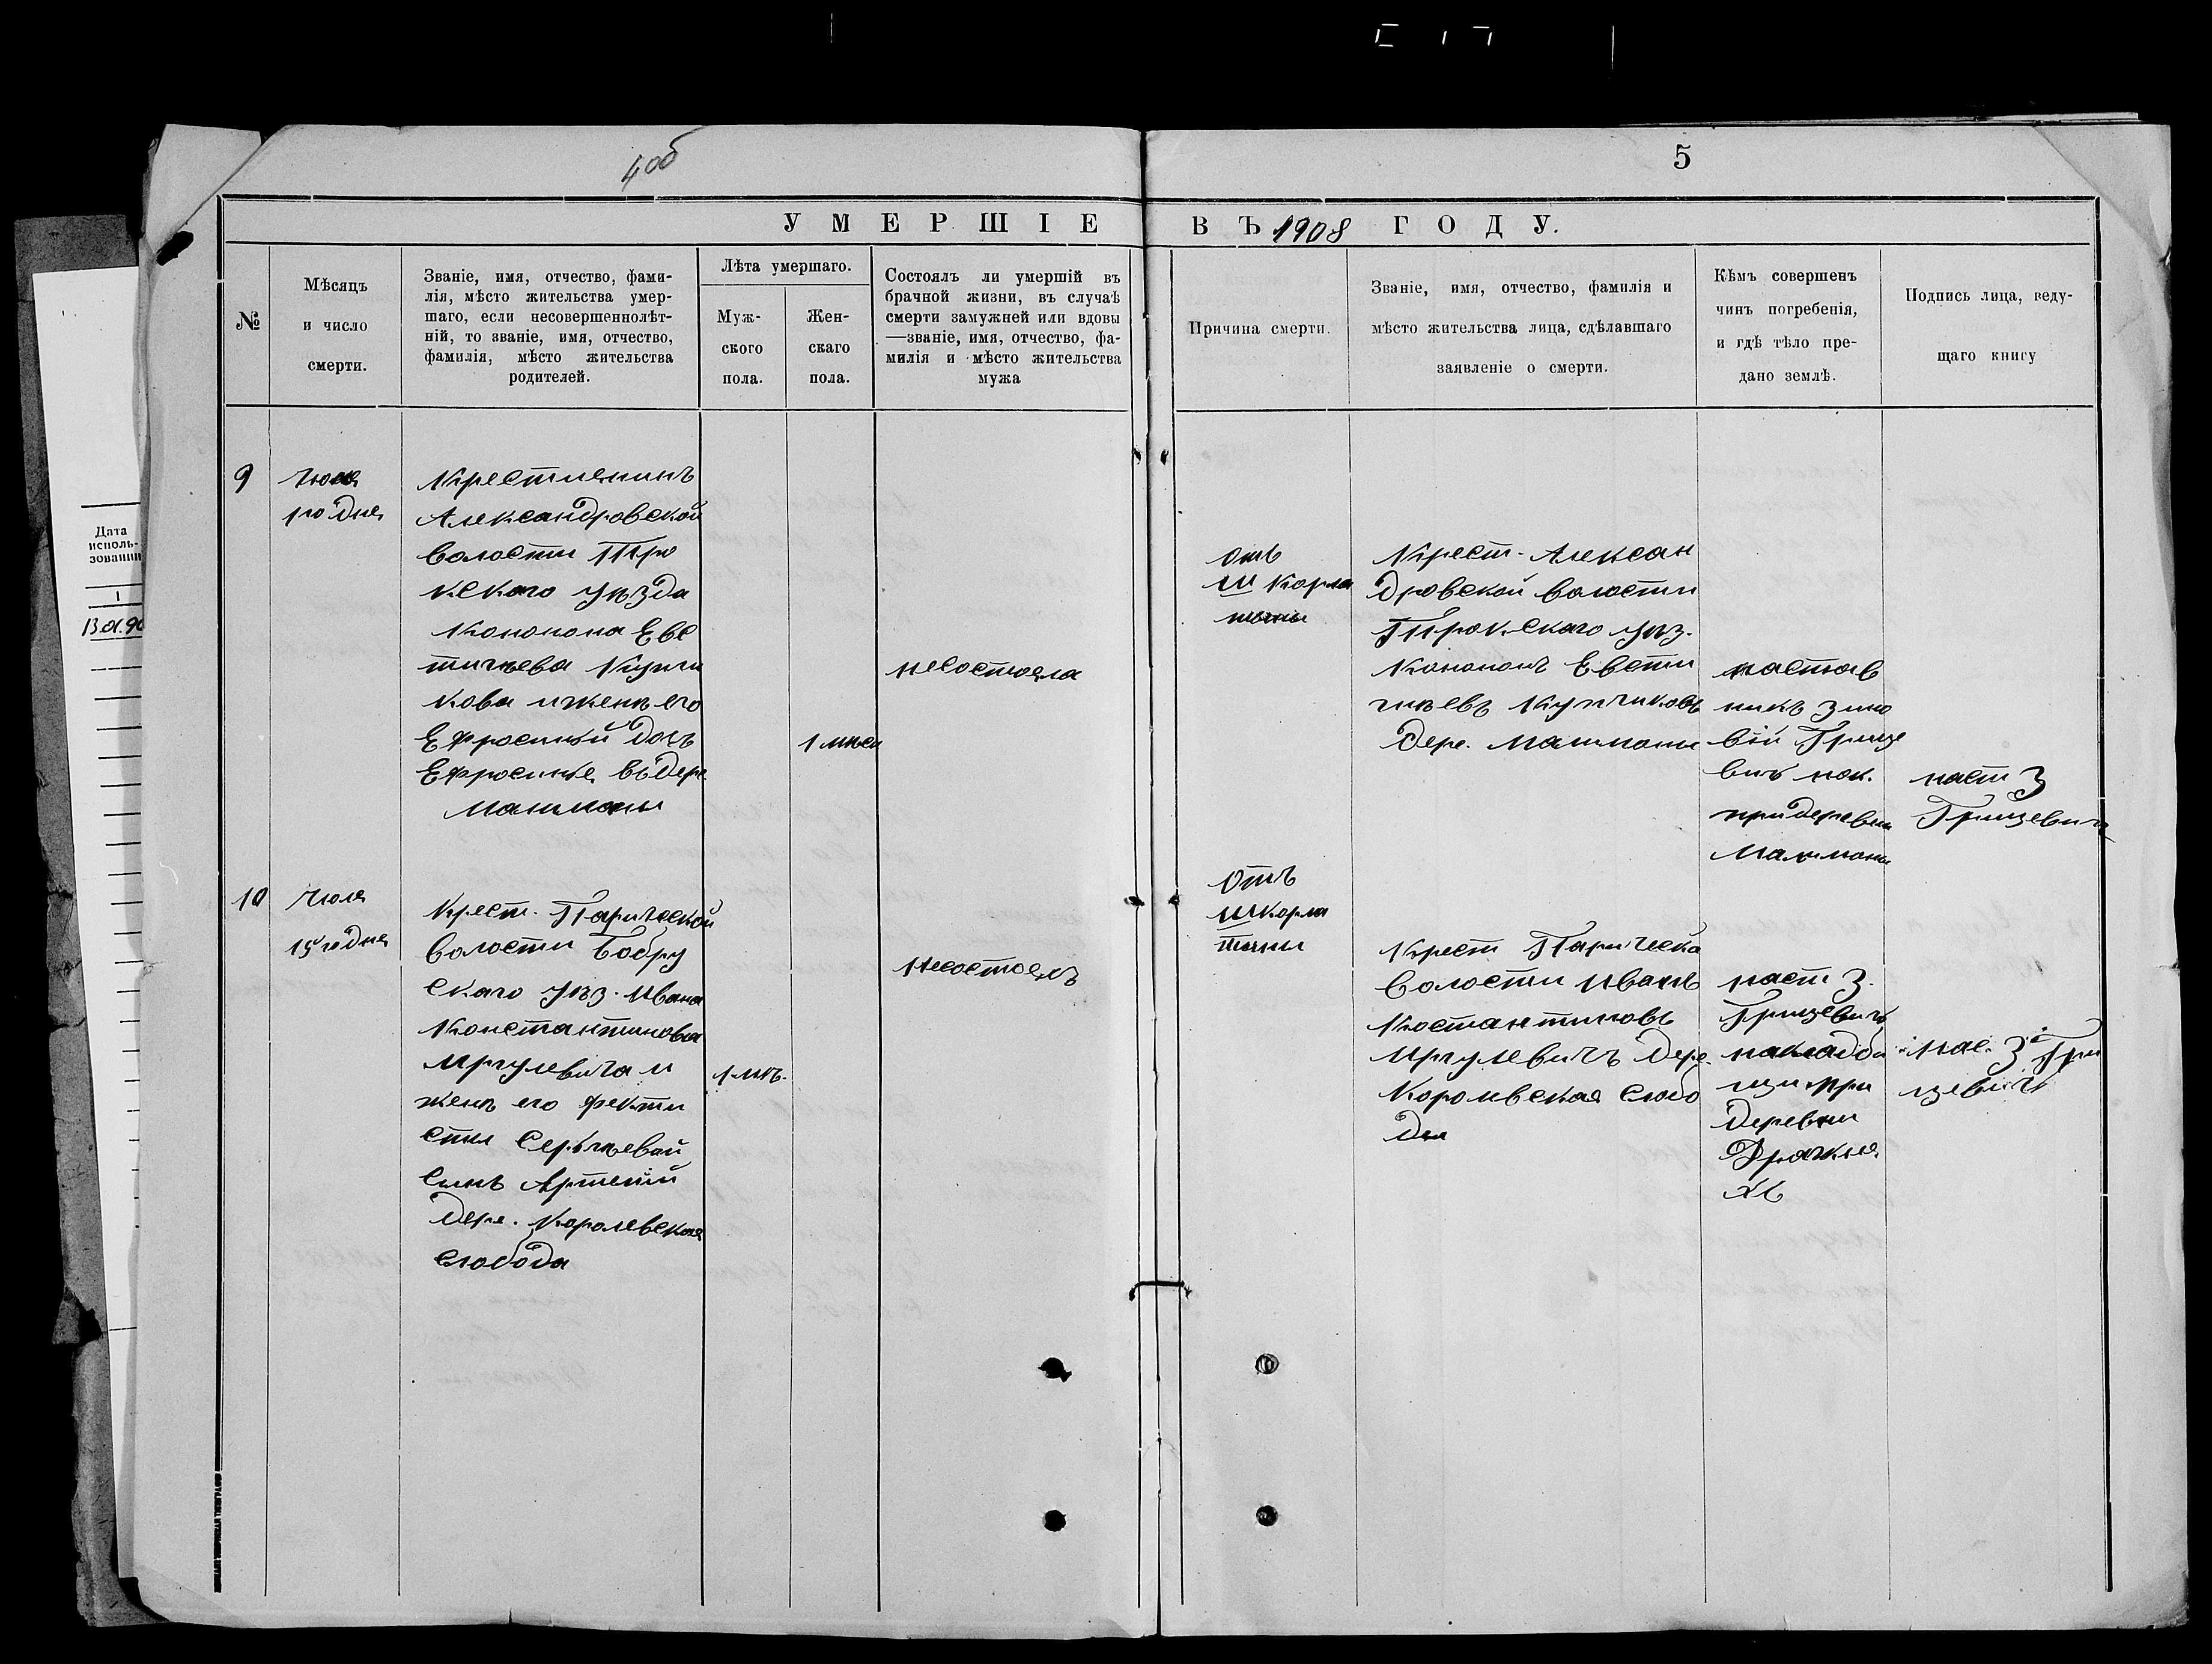 4об
5
УМЕРШІЕ ВЪ 1908 ГОДУ.
№
Мѣсяцъ
и число
смерти.
Званіе, имя, отчество, фами-
лія, мѣсто жительства умер-
шаго, если несовершеннолѣт-
ній, то званіе, имя, отчество,
фамилія, мѣсто жительства
родителей.
Лѣта умершаго.
Муж-
ского
пола.
Жен-
скаго
пола.
Состоялъ ли умершій въ
брачной жизни, въ случаѣ
смерти замужней или вдовы
—званіе, имя, отчество, фа-
милія и мѣсто жительства
мужа
Причина смерти.
Званіе, имя, отчество, фамилія и
мѣсто жительства лица, сдѣлавшаго
заявленіе о смерти.
Кѣмъ совершенъ
чинъ погребенія,
и гдѣ тѣло пре-
дано землѣ.
Подпись лица, веду-
щаго книгу
Дата
исполь-
зования
1
9
1го дня
Крестиянинъ
Александровской
волости Тро
кскаго уѣзда
Кононона Евс
тигнева
кова и женѣ его
Ефросиньи дочъ
Ефросинье въ дере
1 мѣся
несостояла
отъ
шкорла
тины
Крест. Алексан
дровской волости
Трокскаго уѣз.
Кононом Евсти
гнѣевъ
дере.
настав
никъ Зино
вій Грице
вичъ пох.
при деревни
наст З
Грицевичъ
10
Июля
15 го дня
Крест. Паричской
волости Бобру
скаго уѣз. Ивана
Константинова
Иргулевича и
женѣ его Фекти
сты Сергѣевой
сынъ Артемий
дере. Королевская
слобода
1 мѣ.
Несостоялъ
Отъ
шкорла
тины
Крест Паричска
волости Иванъ
Костантиновъ
Иргулевичъ дере.
Королевская слобо
да
наст З.
Грицевичъ
накладби
щи при
деревни
нас. З Гри
цевичъ